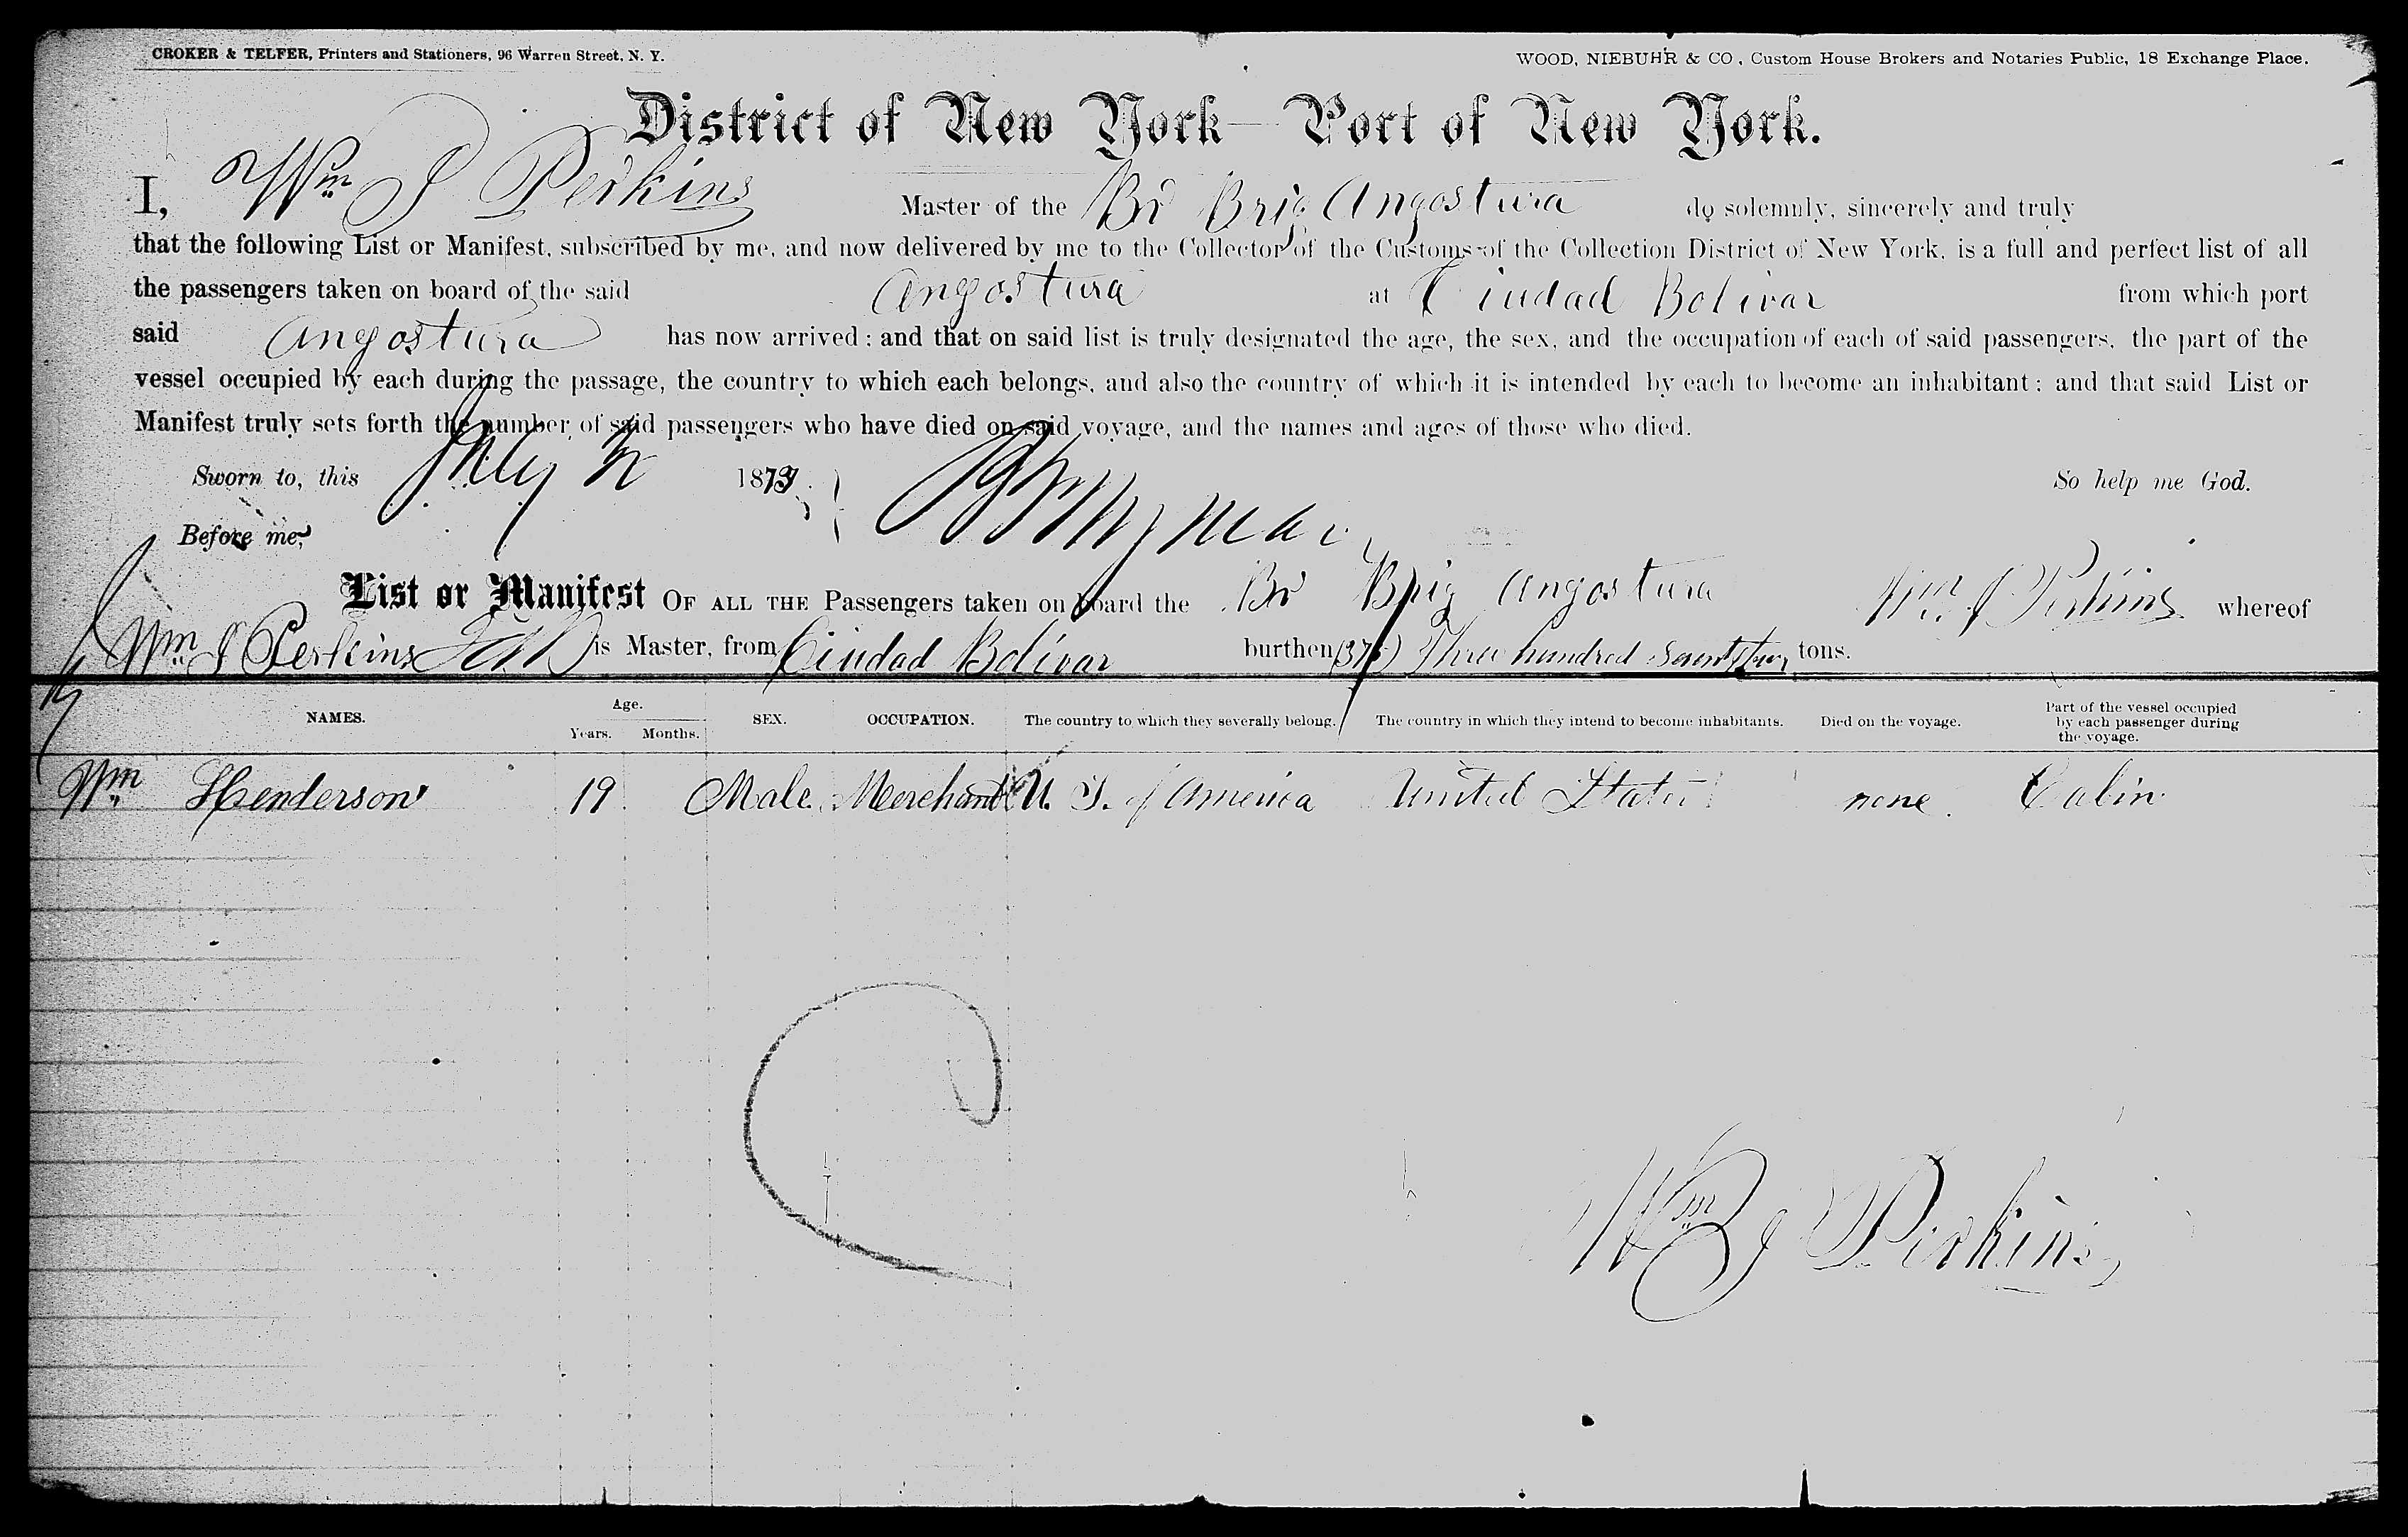 CROKER & TELFER, Printers and Stationers, 96 Warren Street, N. Y.
WOOD, NIEBUHR & CO., Custom House Brokers and Notaries Public, 18 Exchange Place.
District of New York—Port of New York.
I, Wm J Perkins Master of the Br Brig Angostura do solemnly, sincerely and truly
that the following List or Manifest, subscribed by me, and now delivered by me to the Collector of the Customs of the Collection District of New York, is a full and perfect list of all
the passengers taken on board of the said Angostura at Ciudad Bolivar from which port
said Angostura has now arrived: and that on said list is truly designated the age, the sex, and the occupation of each of said passengers, the part of the
vessel occupied by each during the passage, the country to which each belongs, and also the country of which it is intended by each to become an inhabitant; and that said List or
Manifest truly sets forth the number of said passengers who have died on said voyage, and the names and ages of those who died.
Sworn to, this July 1873 So help me God.
Before me,
List or Manifest OF ALL THE Passengers taken on board the Br Brig Angostura Wm J Perkins whereof
Wm J Perkins is Master, from Ciudad Bolivar burthen Three hundred seventy two tons.
NAMES. Age. Years. Months. SEX. OCCUPATION. The country to which they severally belong. The country in which they intend to become inhabitants. Died on the voyage. Part of the vessel occupied by each passenger during the voyage.
Wm Henderson 19 Male Merchant U. S. of America United States none. Cabin
Wm J Perkins